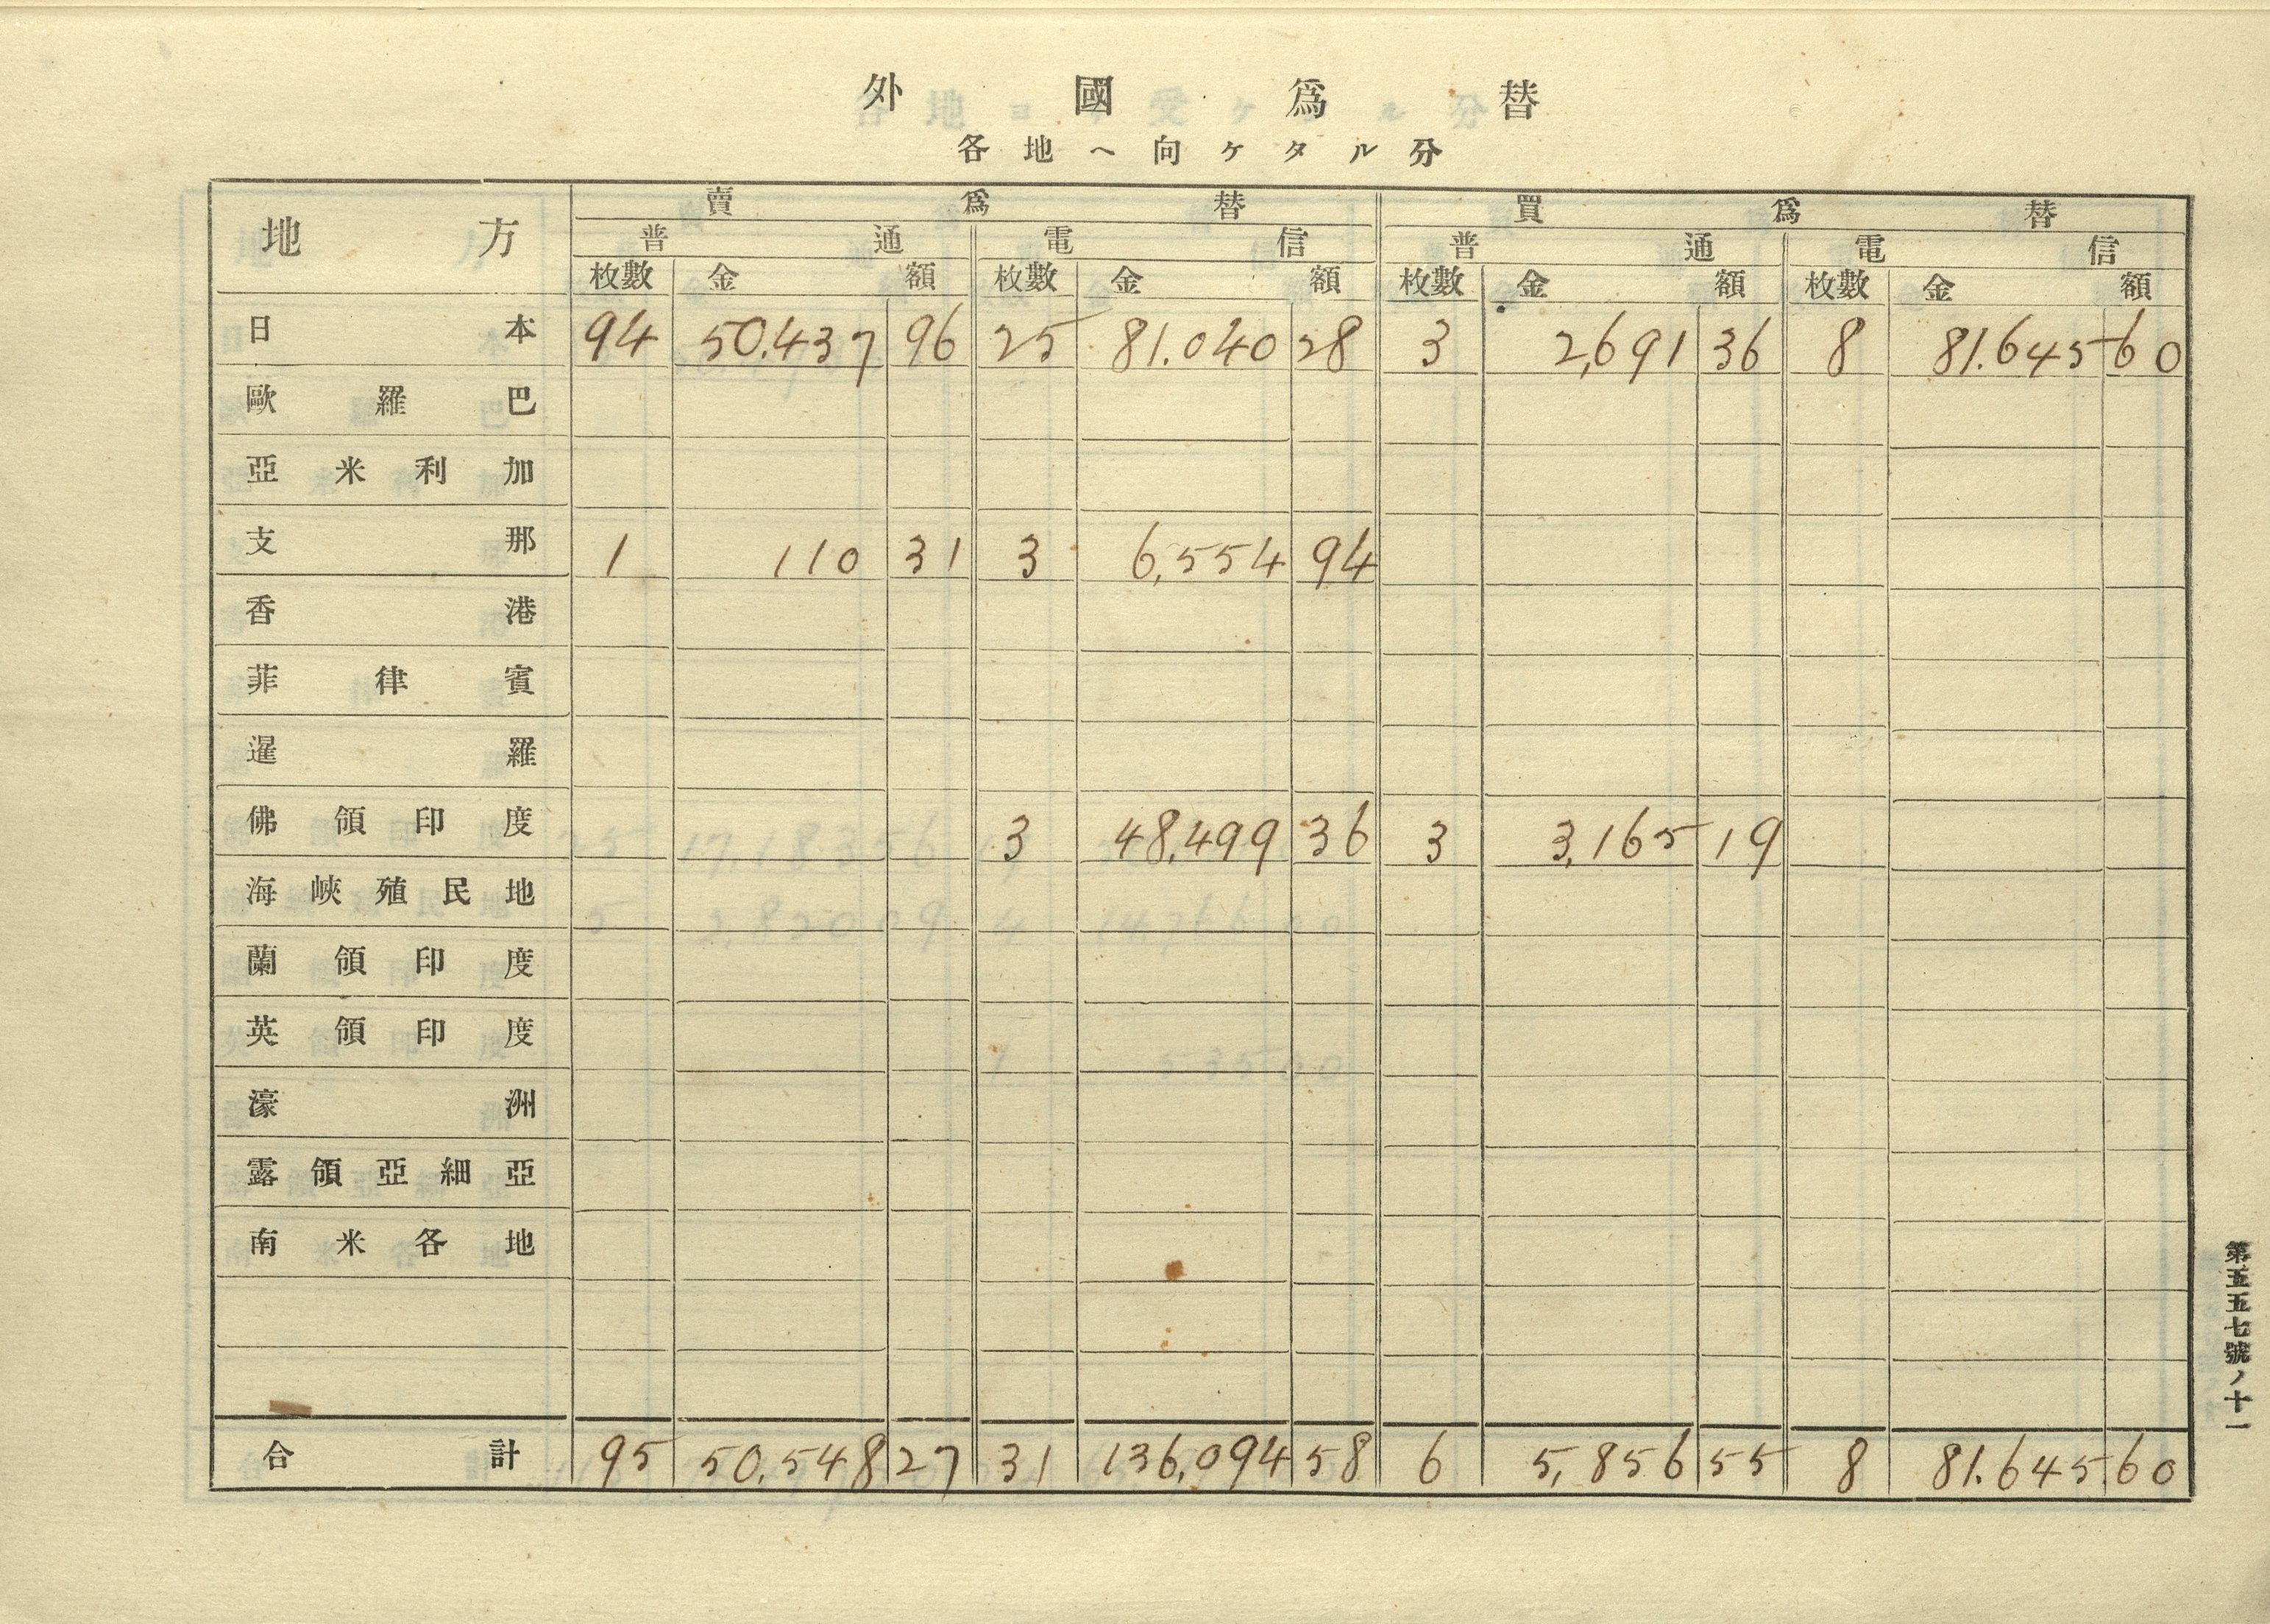 外國爲替
各地ヘ向ケタル分
地方 賣爲替 買爲替
普通 電信 普通 電信
枚數 金額 枚數 金額 枚數 金額 枚數 金額
日本 94 50.437 96 25 81.040 28 3 2,691 36 8 81.645 60
歐羅巴
亞米利加
支那 1 110 31 3 6,554 94
香港
菲律賓
暹羅
佛領印度 3 48,499 36 3 3,165 19
海峽殖民地
蘭領印度
英領印度
濠洲
露領亞細亞
南米各地
合計 95 50.548 27 31 136,094 58 6 5,856 55 8 81.645 60
第五五七號ノ十一